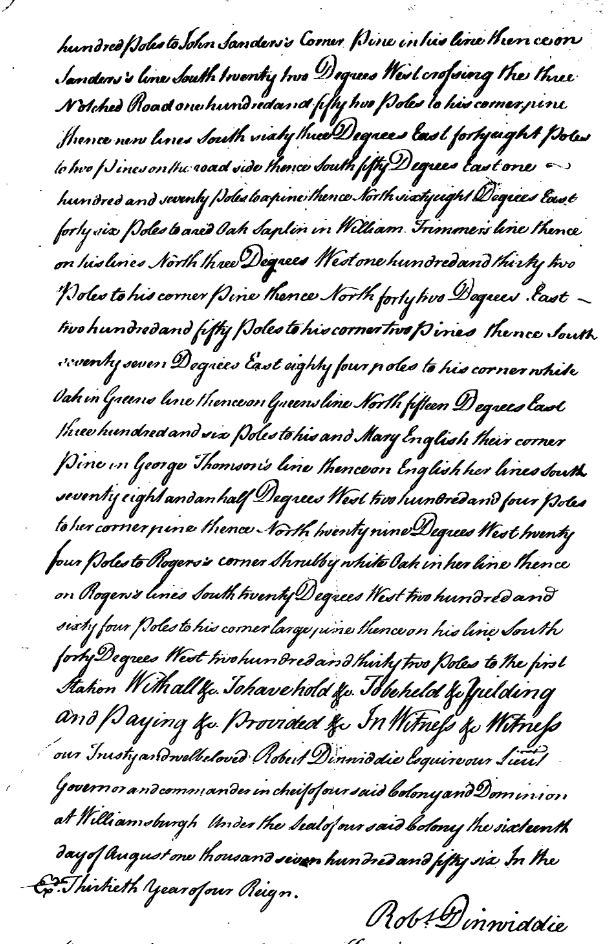 hundred Poles to John Sanders's Corner Pine in his line thence on
Sanders's line South twenty two Degrees West crossing the three
Notched Road one hundred and fifty two Poles to his corner pine
thence new lines South sixty three Degrees East forty eight Poles
to two Pines on the road side thence South fifty Degrees East one ~
hundred and seventy Poles to a pine thence North sixty eight Degrees East
forty six Poles to a red Oak Saplin in William Trimmer's line thence
on his lines North three Degrees West one hundred and thirty two
Poles to his corner Pine thence North forty two Degrees East –
two hundred and fifty Poles to his corner two Pines thence South
seventy seven Degrees East eighty four poles to his corner white
Oak in Greens line thence on Greens line North fifteen Degrees East
three hundred and six Poles to his and Mary English their corner
Pine in George Thomson's line thence on English her lines South
seventy eight and an half Degrees West two hundred and four Poles
to her corner pine thence North twenty nine Degrees West twenty
four Poles to Rogers's corner Shrubby white Oak in her line thence
on Rogers's lines South twenty Degrees West two hundred and
sixty four Poles to his corner large pine thence on his line South
forty Degrees West two hundred and thirty two Poles to the first
Station With all &c. To have hold &c. To be held &c Yielding
and Paying &c. Provided &c In Witness &c Witness
our Trusty and welbeloved Robert Dinwiddie Esquire our Lieut
Governor and commander in cheif of our said Colony and Dominion
at Williamsburgh Under the Seal of our said Colony the sixteenth
day of August one thousand seven hundred and fifty six In the
Thirtieth Year of our Reign.
Robt. Dinwiddie